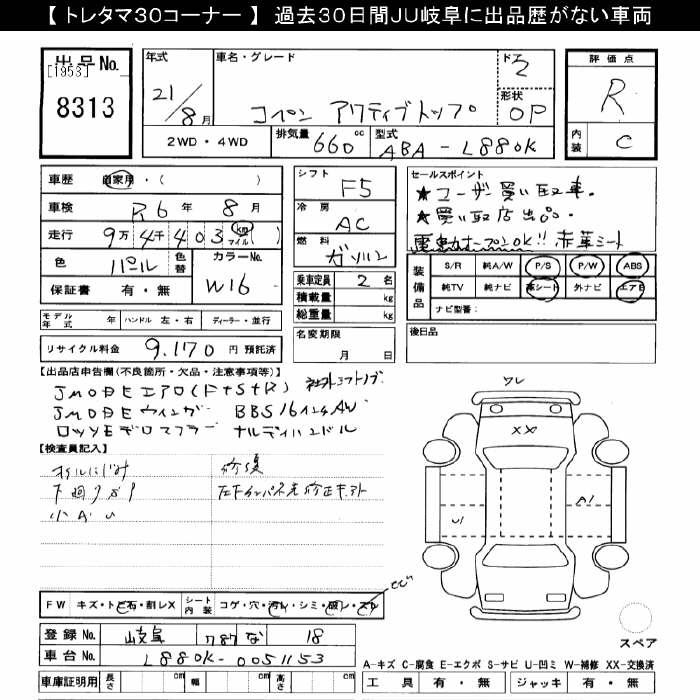 【 トレタマ30コーナー 】 過去30日間JU岐阜に出品歴がない車両
出品No.
[1953]
8313
年式
21/8月
車名・グレード
コペン アクティブトップ
ドア
2
形状
OP
評価点
R
内装
C
2WD・4WD
排気量 660cc
型式 ABA-L880K
車歴 自家用・( )
車検 R6年 8月
走行 9万4千403 km マイル ( )
色 パール 色替
カラーNo. W16
保証書 有・無
シフト F5
冷房 AC
燃料 ガソリン
乗車定員 2名
積載量 kg
総重量 kg
セールスポイント
★ユーザー買い取り車。
★買い取り店出品。
電動オープンOK!! 赤革シート
装備品
S/R 純A/W P/S P/W ABS
純TV 純ナビ 革シート 外ナビ エアB
ナビ型番:
モデル年式 年 ハンドル 左・右 ディーラー・並行
リサイクル料金 9.170 円 預託済
名変期限
月 日
後日品
【出品店申告欄(不良箇所・欠品・注意事項等)】
JMODEエアロ(F+S+R) 社外シフトノブ
JMODEウィンガー BBS16インチAW
ロッソモデロマフラー ナルディハンドル
【検査員記入】
オイルにじみ
下廻りサビ
小AU
修復
左Fインパネ先修正キット
ワレ
XX
U1
A1
FW キズ・トビ石・割レX
シート内装 コゲ・穴・汚レ・シミ・破レ・スレ
登録No. 岐阜 787 な 18
車台No. L880K-0051153
車庫証明用 長さ cm 幅 cm 高さ cm
スペア
A-キズ C-腐食 E-エクボ S-サビ U-凹ミ W-補修 XX-交換済
工具 有・無 ジャッキ 有・無